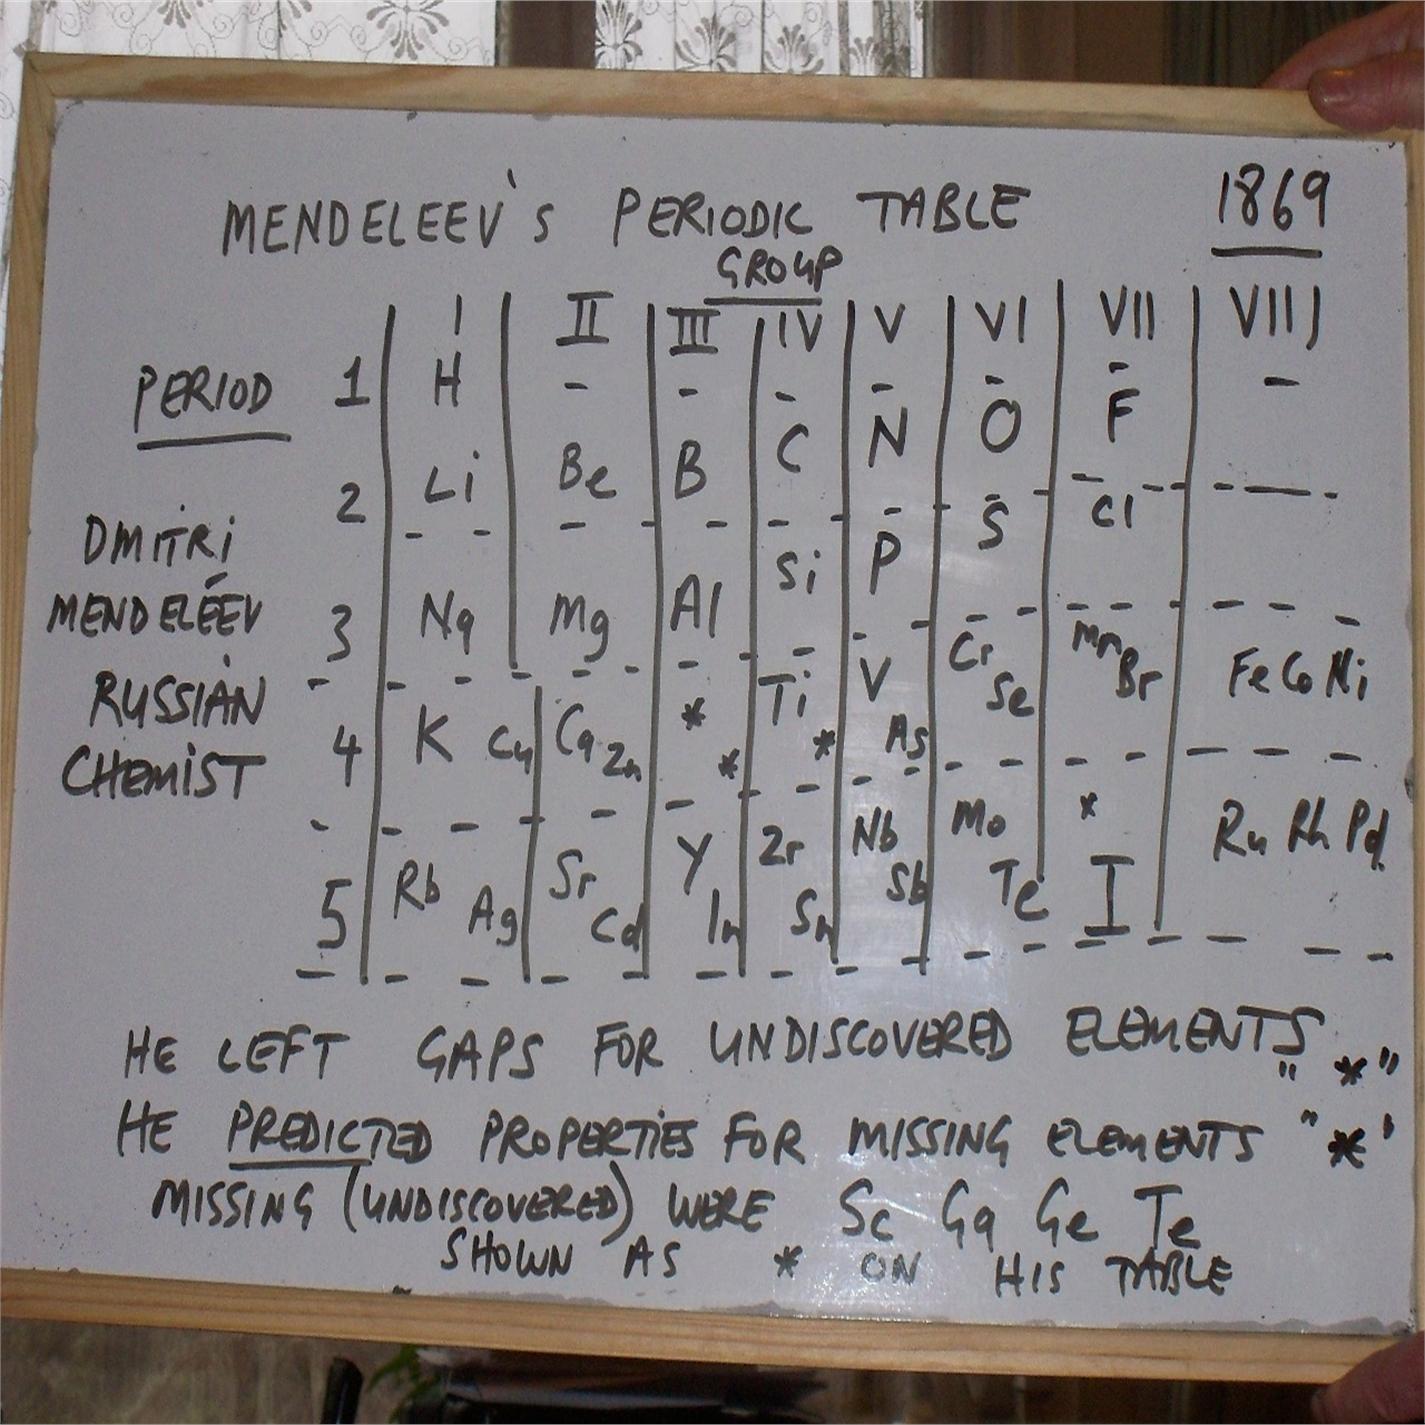 MENDELEEV'S PERIODIC TABLE 1869
GROUP
I II III IV V VI VII VIII
PERIOD 1 H - - - - - - -
2 Li Be B C N O F
DMITRI
MENDELÉEV
RUSSIAN
CHEMIST
3 Na Mg Al Si P S Cl
4 K Cu Ca Zn * * Ti * V As Cr Se Mn Br Fe Co Ni
5 Rb Ag Sr Cd Y In Zr Sn Nb Sb Mo Te * I Ru Rh Pd
HE LEFT GAPS FOR UNDISCOVERED ELEMENTS "*"
HE PREDICTED PROPERTIES FOR MISSING ELEMENTS "*'
MISSING (UNDISCOVERED) WERE Sc Ga Ge Te
SHOWN AS * ON HIS TABLE